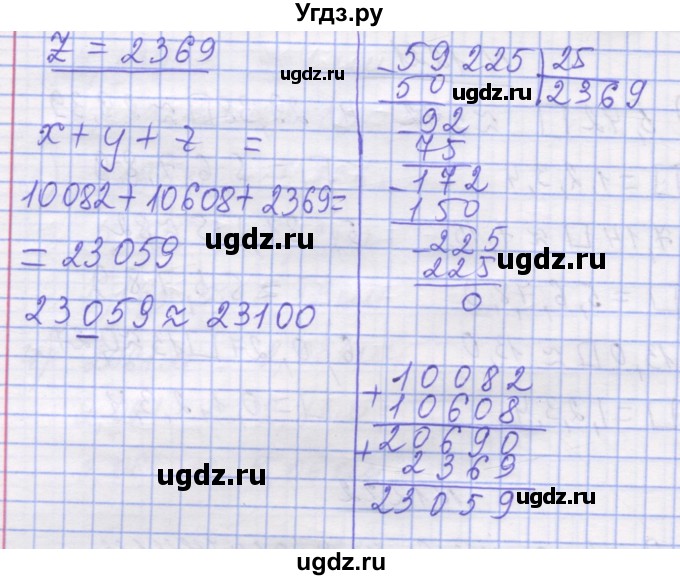 Угдз.ру
z = 2369
x + y + z =
10082 + 10608 + 2369 =
= 23059
23059 ≈ 23100
59225 | 25
- 50 | 2369
- 92
75
- 172
150
- 225
225
0
+ 10082
10608
20690
+ 2369
23059
ugdz.ru
ugdz.ru
ugdz.ru
ugdz.ru
ugdz.ru
ugdz.ru
ugdz.ru